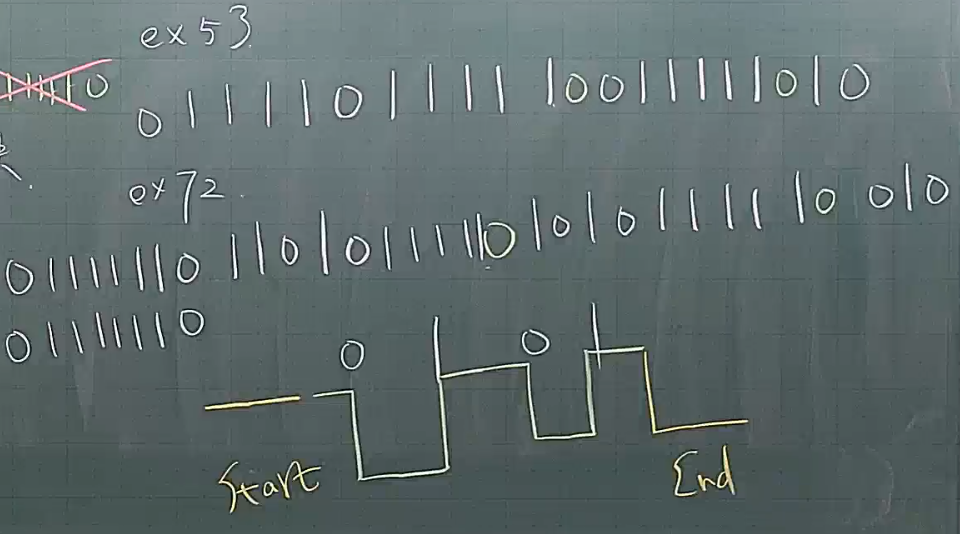 ex 53.
0
011110111110011111010
ex 72.
01111110 11010111110101011111 0010
01111110
0 1 0 1
Start End